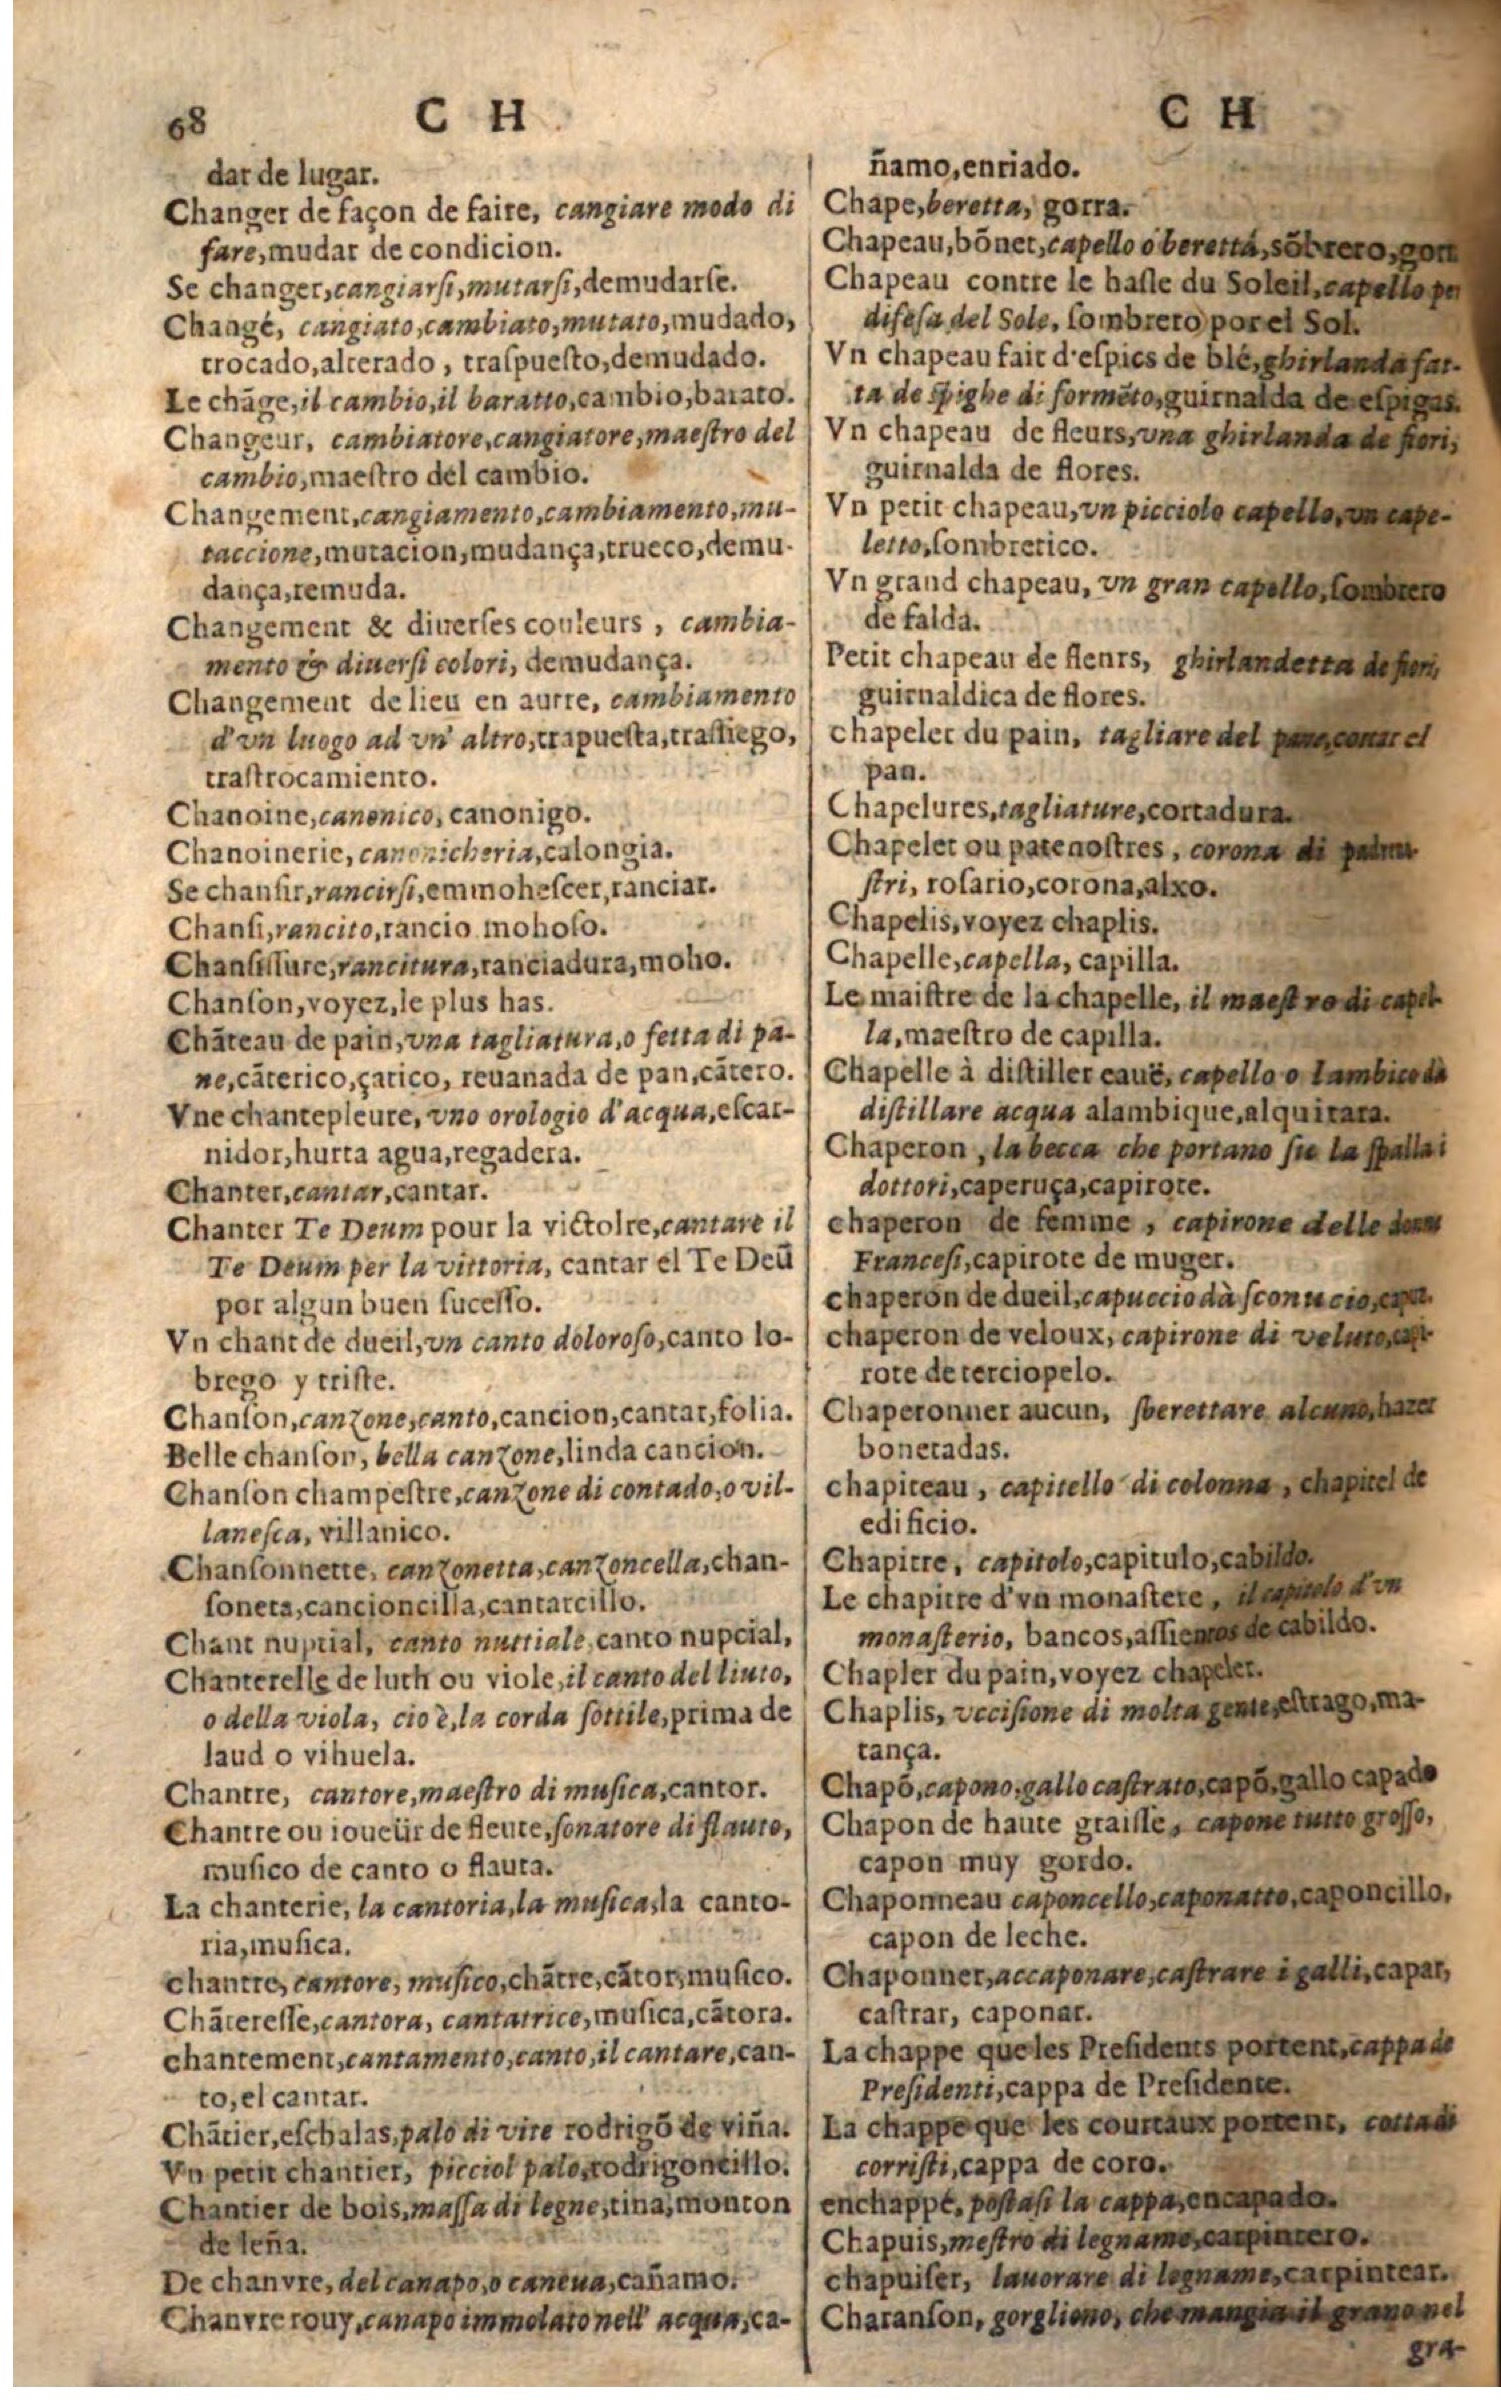 68 C H
dar de lugar.
Changer de façon de faire, cangiare modo di
fare,mudar de condicion.
Se changer,cangiarſi,mutarſi,demudarſe.
Changé, cangiato,cambiato,mutato,mudado,
trocado,alterado , traſpueſto,demudado.
Le chãge,il cambio,il baratto,cambio,barato.
Changeur, cambiatore,cangiatore,maeſtro del
cambio,maeſtro del cambio.
Changement,cangiamento,cambiamento,mu-
taccione,mutacion,mudança,trueco,demu-
dança,remuda.
Changement & diuerſes couleurs , cambia-
mento & diuerſi colori, demudança.
Changement de lieu en autre, cambiamento
d'vn luogo ad vn' altro,trapueſta,traſtiego,
traſtrocamiento.
Chanoine,canonico, canonigo.
Chanoinerie, canonicheria,calongia.
Se chanſir,rancirſi,emmoheſcer,ranciar.
Chanſi,rancito,rancio mohoſo.
Chanſiſſure,rancitura,ranciadura,moho.
Chanſon,voyez,le plus has.
Chãteau de pain,vna tagliatura,o fetta di pa-
ne,cãterico,çatico, reuanada de pan,cãtero.
Vne chantepleure, vno orologio d'acqua,eſcar-
nidor,hurta agua,regadera.
Chanter,cantar,cantar.
Chanter Te Deum pour la victoIre,cantare il
Te Deum per la vittoria, cantar el Te Deũ
por algun buen ſuceſſo.
Vn chant de dueil,vn canto doloroſo,canto lo-
brego y triſte.
Chanſon,canzone,canto,cancion,cantar,folia.
Belle chanſon, bella canzone,linda cancion.
Chanſon champeſtre,canzone di contado,o vil-
laneſca, villanico.
Chanſonnette, canzonetta,canzoncella,chan-
ſoneta,cancioncilla,cantarcillo.
Chant nuptial, canto nuttiale,canto nupcial,
Chanterelle de luth ou viole,il canto del liuto,
o della viola, cio è,la corda ſottile,prima de
laud o vihuela.
Chantre, cantore,maeſtro di muſica,cantor.
Chantre ou ioueür de fleute,ſonatore di flauto,
muſico de canto o flauta.
La chanterie, la cantoria,la muſica,la canto-
ria,muſica.
chantre, cantore, muſico,chãtre,cãtor,muſico.
Chãtereſſe,cantora, cantatrice,muſica,cãtora.
chantement,cantamento,canto,il cantare,can-
to,el cantar.
Chãtier,eſchalas,palo di vite rodrigõ de viña.
Vn petit chantier, picciol palo,rodrigoncillo.
Chantier de bois,maſſa di legne,tina,monton
de leña.
De chanvre, del canapo,o caneua,cañamo.
Chanvre rouy,canapo immolato nell' acqua,ca-
C H
ñamo,enriado.
Chape,beretta, gorra.
Chapeau,bõnet,capello o beretta,sõbrero,gorr
Chapeau contre le haſle du Soleil,capello per
difeſa del Sole, ſombrero por el Sol.
Vn chapeau fait d'eſpics de blé,ghirlanda fat-
ta de ſpighe di formẽto,guirnalda de eſpigas.
Vn chapeau de fleurs,vna ghirlanda de fiori,
guirnalda de flores.
Vn petit chapeau,vn picciolo capello,vn cape-
letto,ſombretico.
Vn grand chapeau, vn gran capello,ſombrero
de falda.
Petit chapeau de flenrs, ghirlandetta de fiori,
guirnaldica de flores.
chapeler du pain, tagliare del pane,cortar el
pan.
Chapelures,tagliature,cortadura.
Chapelet ou patenoſtres , corona di
ſtri, roſario,corona,alxo.
Chapelis,voyez chaplis.
Chapelle,capella, capilla.
Le maiſtre de la chapelle, il maeſtro di capel-
la,maeſtro de capilla.
Chapelle à diſtiller eauë, capello o lambico dà
diſtillare acqua alambique,alquitara.
Chaperon , la becca che portano ſu la ſpalla i
dottori,caperuça,capirote.
chaperon de femme , capirone delle donne
Franceſi,capirote de muger.
chaperon de dueil,capuccio dà ſconucio,
chaperon de veloux, capirone di veluto,capi-
rote de terciopelo.
Chaperonner aucun, sberettare alcuno,hazer
bonetadas.
chapiteau , capitello di colonna , chapitel de
edificio.
Chapitre, capitolo,capitulo,cabildo.
Le chapitre d'vn monaſtere , il capitolo d'vn
monaſterio, bancos,aſſientos de cabildo.
Chapler du pain,voyez chapeler.
Chaplis, vcciſione di molta gente,eſtrago,ma-
tança.
Chapõ,capono,gallo caſtrato,capõ,gallo capado
Chapon de haute graiſſe, capone tutto groſſo,
capon muy gordo.
Chaponneau caponcello,caponatto,caponcillo,
capon de leche.
Chaponner,accaponare,caſtrare i galli,capar,
caſtrar, caponar.
La chappe que les Preſidents portent,cappa de
Preſidenti,cappa de Preſidente.
La chappe que les courtaux portent, cotta di
corriſti,cappa de coro.
enchappé, poſtaſi la cappa,encapado.
Chapuis,meſtro di legname,carpintero.
chapuiſer, lauorare di legname,carpintear.
Charanſon, gorgliono, che mangia il grano nel
gra-